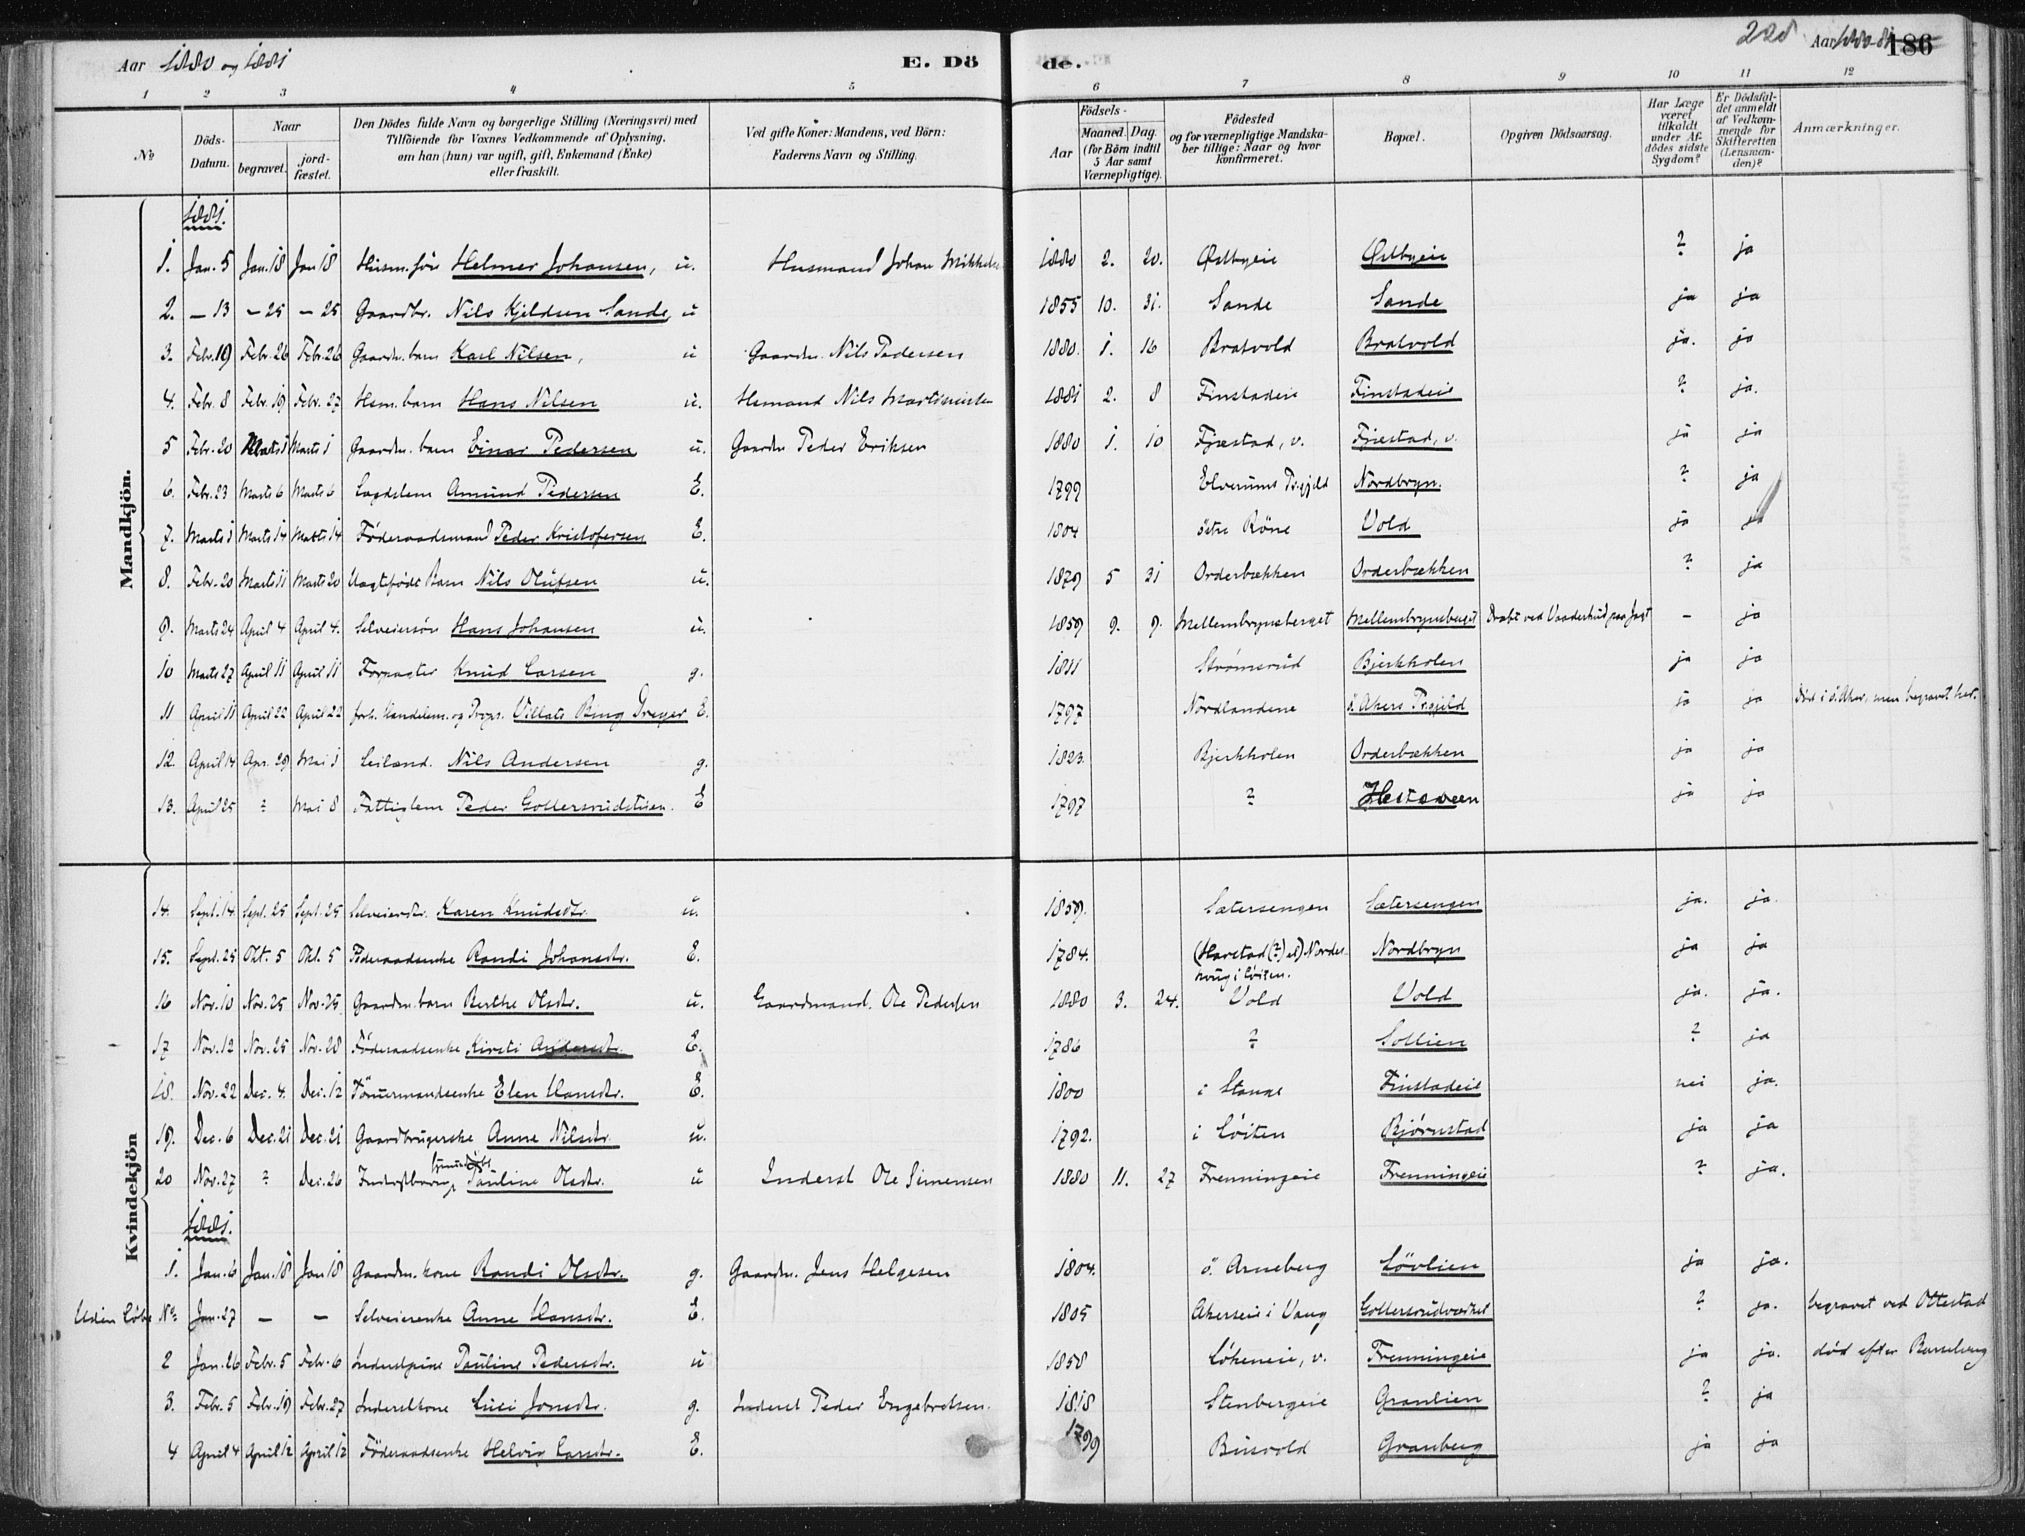 Aar 1880 og 1881 E. Dö de. 228 Aar 1880-81 186
1 2 3 4 5 6 7 8 9 10 11 12
No Döds-Datum. Naar begravet. jordfæstet. Den Dödes fulde Navn og borgerlige Stilling (Næringsvei) med Tilföiende for Voxnes Vedkommende af Oplysning, om han (hun) var ugift, gift, Enkemand (Enke) eller fraskilt. Ved gifte Koner: Mandens, ved Börn: Faderens Navn og Stilling. Födsels- Aar Maaned. Dag. (for Börn indtil 5 Aar samt Værnepligtige). Födested og for værnepligtige Mandskaber tillige: Naar og hvor konfirmeret. Bopæl. Opgiven Dödsaarsag. Har Læge været tilkaldt under Afdödes sidste Sygdom? Er Dödsfaldet anmeldt af Vedkommende for Skifteretten (Lensmanden)? Anmærkninger.
Mandkjön.
1881.
1. Jan. 5 Jan. 18 Jan 18 Husm. sön Helmer Johansen, u. Husmand Johan Mikkels 1880 2. 20. Østbyeie Østbyeie ? ja
2. — 13 — 25 — 25 Gaardbr. Nils Kjeldsen Sande u 1855 10. 31. Sande Sande ja ja
3. Febr. 19 Febr. 26 Febr. 26 Gaardm. barn Karl Nilsen, u Gaardm. Nils Pedersen 1880. 1. 16 Bratvold Bratvold ja. ja
4. Febr. 8 Febr. 19 Febr. 27 Hsm. barn Hans Nilsen u. Hsmand Nils 1881 2. 8 Finstadeie Finstadeie ? ja.
5 Febr. 20 Marts 1 Marts 1 Gaardm. barn Einar Pedersen u. Gaardm Peder Eriksen 1880 1. 10 Fjæstad, v. Fjæstad, v. ja ja
6. Febr. 23 Marts 6 Marts 6 Lægdslem Amund Pedersen E. 1799 Elverums Prgjeld Nordbryn. ? ja
7. Marts 1 Marts 14 Marts 14 Föderaadsmand Peder Kristofersen E. 1804 östre Röne Vold ja ja
8. Febr. 20 Marts 11 Marts 20 Uægtefödt Barn Nils Olufsen u. 1879 5 31 Orderbækken Orderbækken ? ja
9. Marts 24 April 4 April 4. Selveiersön Hans Johansen u. 1859 9. 9. Mellembrynsberget Mellembrynsberget Dræbt ved Vaadeskud paa Jagt — ja
10 Marts 27 April 11 April 11 Forpagter Knud Larsen g. 1811 Strömsrud Bjerkholen ja ja
11 April 11 April 22 April 22 forh. Handelsm. og Propr. Villats Bing Dreyer E. 1797 Nordlandene ö. Akers Prgjeld ja ja Död i ö. Aker, men begravet her.
12. April 14 Apr. 29 Mai 1 Leilænd. Nils Andersen g. 1823. Bjerkholen Orderbækken ja ja
13. April 25 ? Mai 8 Fattiglem Peder Gollersrudstuen. E 1797 ? Hestsveen ja ja
Kvindekjön
14. Sept. 14. Sept. 25 Sept. 25 Selveierdtr. Karen Knudsdtr. u. 1859. Sætersengen Sætersengen ja. ja.
15. Sept. 25 Okt. 5 Okt. 5 Föderaadsenke Randi Johansdtr. E. 1784. (Harstad (?) el) Nordeshaug i Löiten. Nordbryn ja ja
16 Nov. 10 Nov. 25 Nov. 25 Gaardm. barn Berthe Olsdtr. u. Gaardmand. Ole Pedersen 1880 3. 24. Vold Vold ja. ja.
17 Nov. 12 Nov. 25 Nov. 28 Föderaadsenke Kirsti Andersdtr. E. 1786 ? Sollien ? ja
18. Nov. 22 Dec. 4. Dec. 12 Tömmermandsenke Elen Hansdtr. E. 1800 i Stange Finstadeie nei ja.
19. Dec. 6 Dec. 21 Dec. 21 Gaardbrugerske Anne Nilsdtr. u. 1792. i Löiten Björnstad ja ja
20 Nov. 27 ? Dec. 26 Inderstbarn Pauline Olsdtr. u Inderst Ole Simensen 1880 11. 27 Frenningeie Frenningeie ? ja.
1881.
1. Jan. 6 Jan. 18 Jan 18 Gaardm. kone Randi Olsdtr. g. Gaardm. Jens Helgesen 1804. ö. Arneberg Lövlien ja ja.
Uden Löbe No: Jan. 27 — — Selveierenke Anne Hansdtr. E. 1805 Akerseie i Vang Gollersrudværket ? ja. begravet ved Ottestad
2 Jan. 26 Febr. 5 Febr. 6 Inderstpige Pauline Pedersdtr. u 1858 Lökeneie, v. Frenningeie ja ja. död efter Barselseng
3. Febr. 5 Febr. 19 Febr. 27 Inderstkone Lisi Jonsdtr. g. Inderst Peder Engebretsen. 1818 Stenbergeie Granlien ? ja
4 April 4 April 12 April 12 Föderaadsenke Helvig Larsdtr. E. 1799 Busvold Granberg ja ja